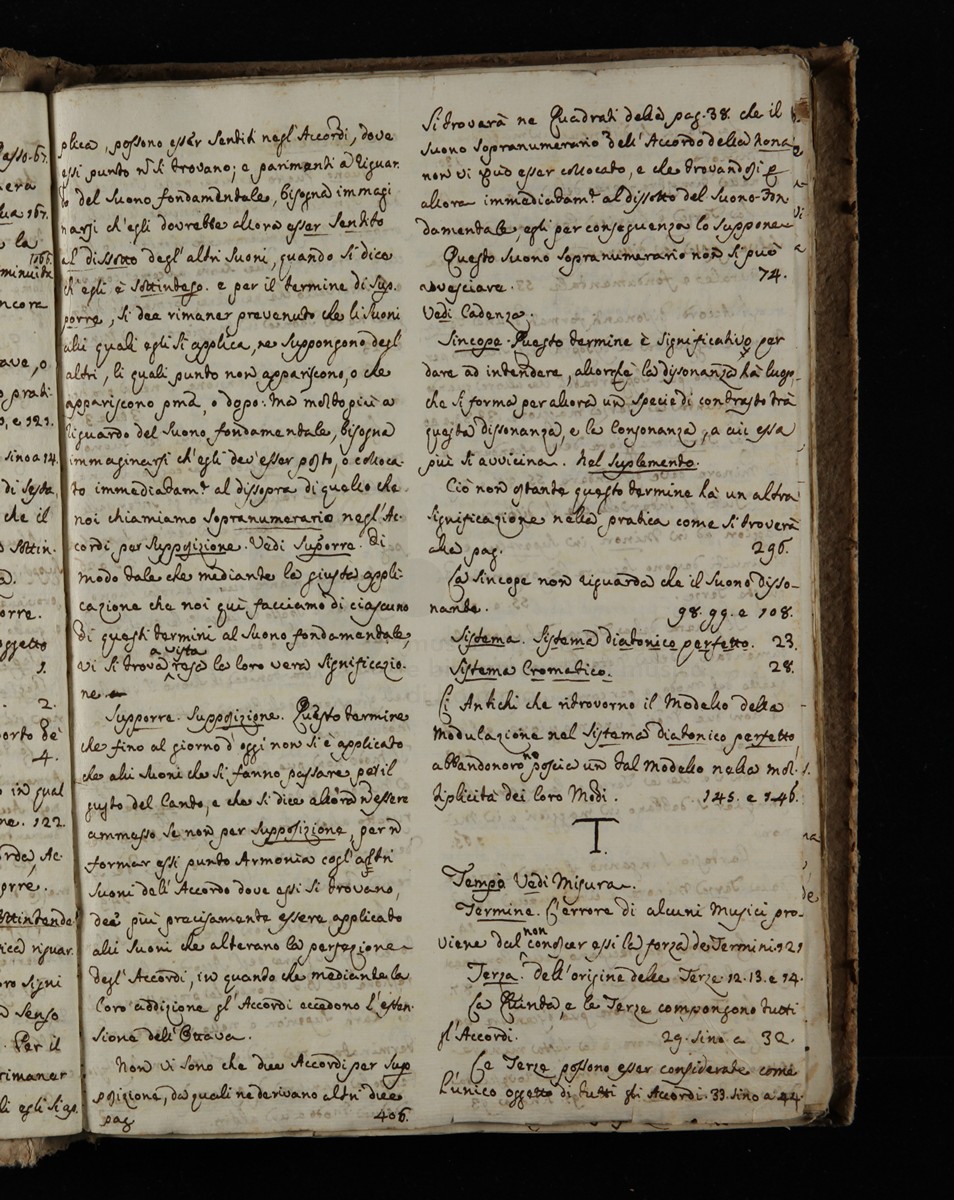 plica, possono esser sentiti negl'Accordi, dove
essi punto nō si trovano; e parimenti a riguar.
do del Suono fondamentale, bisogna immagi
narsi ch'egli dovrebbe allora esser Sentito
al dissotto degl'altri Suoni, quando si dice
ch'egli è Sottinteso. e per il termine di Sup.
porre, si dee rimaner prevenuto che li Suoni
alli quali egli si applica, ne suppongono degl'
altri, li quali punto non appariscono, o che
appariscono pma, o dopo: Ma molto più a
riguardo del Suono fondamentale, bisogna
immaginarsi ch'egli dev'esser posto, o colloca.
to immediatamte al dissopra di quello che
noi chiamiamo Sopranumerario negl'Ac.
cordi per Supposizione. Vedi Suporre. Di
modo tale che mediante la giusta appli.
cazione che noi quì facciamo di ciascuno
di questi termini al Suono fondamentale,
vi si trova a vista resa la loro vera significazio.
ne
Supporre. Supposizione. Questo termine
che fino al giorno d'oggi non si è applicato
che alli Suoni che si fanno passare per il
gusto del Canto, e che si dice allora nō essere
ammesso se non per Supposizione, per nō
formar essi punto Armonia cogl'altri
Suoni dell'Accordo dove essi si trovano,
dee più precisamente essere applicato
alli Suoni che alterano la perfezione
degl'Accordi, in quando che mediante la
loro addizione gl'Accordi eccedono l'esten.
sione dell'Ottava.
Non vi sono che due Accordi per Sup
posizione, da quali ne derivano altri dieci
pag. 406.
Si troverà ne Quadrati della pag. 38. che il
Suono Sopranumerario dell'Accordo della Nona
non vi può esser collocato, e che trovandosi
allora immediatamte al dissotto del Suono Fon
damentale, egli per conseguenza lo Suppone
Questo Suono Sopranumerario non si può
rovesciare. 74.
Vedi Cadenza.
Sincope. Questo termine è significativo per
dare ad intendere, allorchè la dissonanza hà luogo,
che si forma per allora un specie di contrasto trà
questa dissonanza, e la Consonanza, a cui essa
più si avvicina. Nel Suplemento.
Ciò non ostante questo termine hà un altra
significazione nella pratica come si troverà
alla pag. 296.
La Sincope non riguarda che il Suono disso-
nante. 98. 99. e 108.
Sistema. Sistema diatonico perfetto. 23.
Sistema Cromatico. 28.
Li Antichi che ritrovorno il Modello della
Modulazione nel Sistema diatonico perfetto,
abbandonorono poscia un tal Modello nella mol.
tiplicità dei loro Modi. 145. e 146.
T.
Tempo Vedi Misura.
Termine. L'errore di alcuni Musici pro-
viene dal non conoscer essi la forza de Termini. 121
Terza. dell'origine delle Terze. 12. 13. e 14.
La Quinta, e le Terze compongono tutti
gl'Accordi. 29. sino a 32.
Le Terze possono esser considerate come
l'unico oggetto di tutti gli Accordi. 33. sino a 44.